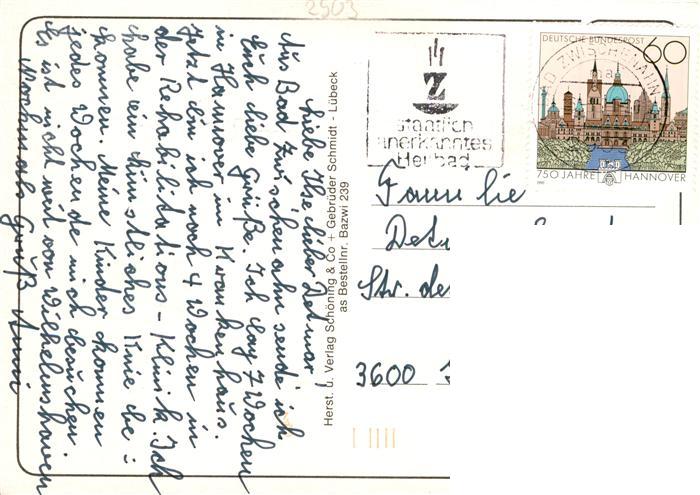 2503
Liebe Ilse, lieber Detmar!
Aus Bad Zwischenahn sende ich
Euch liebe Grüße. Ich lag 7 Wochen
in Hannover im Krankenhaus.
Jetzt bin ich noch 4 Wochen in
der Rehabilitations-Klinik. Ich
habe ein künstliches Knie be-
kommen. Meine Kinder kommen
jedes Wochenende mich besuchen.
Es ist nicht weit von Wilhelmshaven
Nochmals Gruß Anni
Herst. u. Verlag Schöning & Co + Gebrüder Schmidt - Lübeck
as Bestellnr. Bazwi 239
Z
staatlich
anerkanntes
Heilbad
BAD ZWISCHENAHN
DEUTSCHE BUNDESPOST
60
750 JAHRE HANNOVER
1990
Familie
Det
Str. de
3600